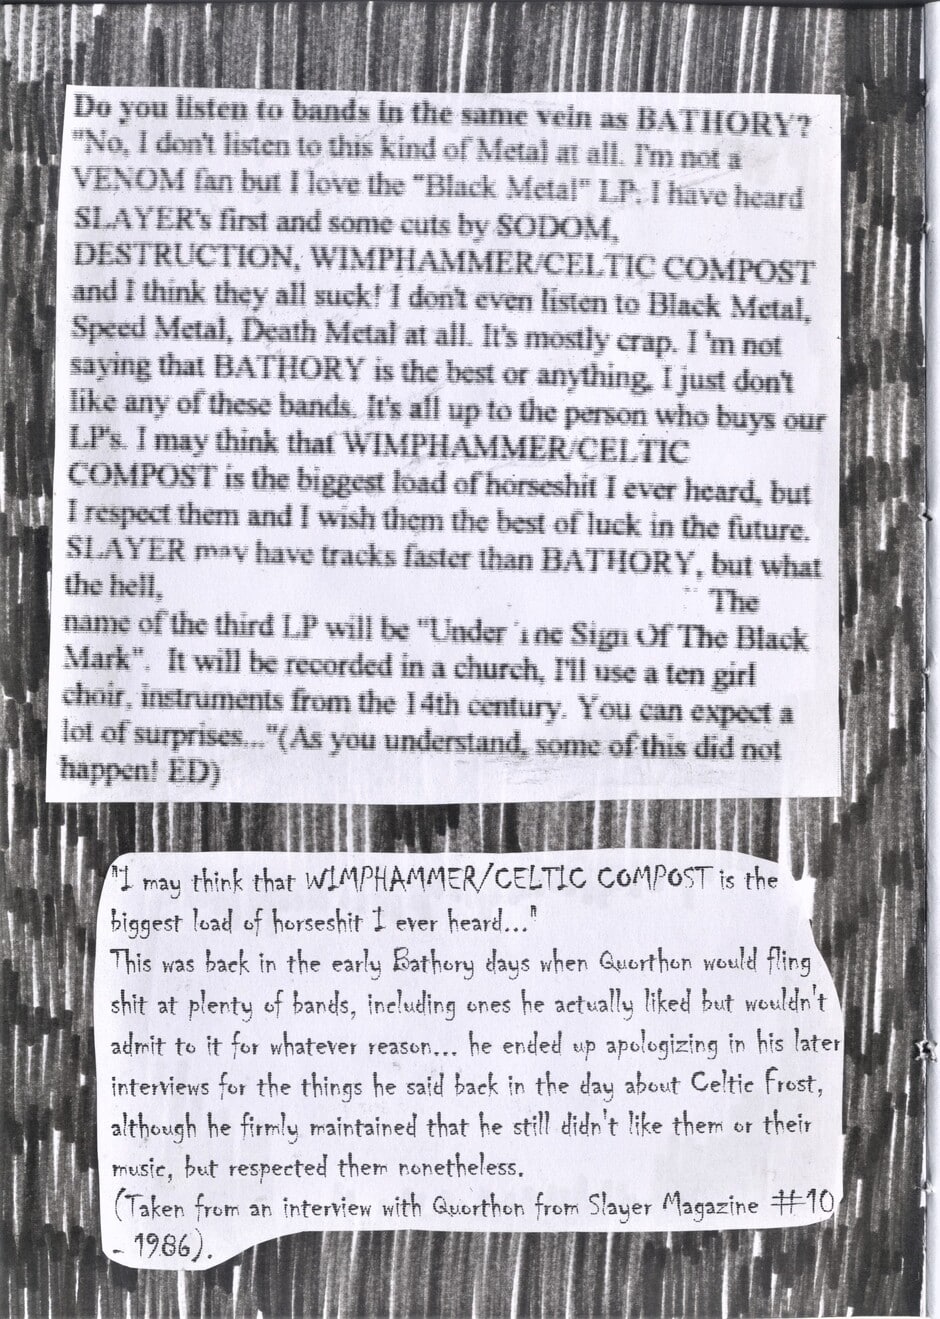 Do you listen to bands in the same vein as BATHORY?
"No, I don't listen to this kind of Metal at all. I'm not a
VENOM fan but I love the "Black Metal" LP. I have heard
SLAYER's first and some cuts by SODOM,
DESTRUCTION, WIMPHAMMER/CELTIC COMPOST
and I think they all suck! I don't even listen to Black Metal,
Speed Metal, Death Metal at all. It's mostly crap. I 'm not
saying that BATHORY is the best or anything, I just don't
like any of these bands. It's all up to the person who buys our
LP's. I may think that WIMPHAMMER/CELTIC
COMPOST is the biggest load of horseshit I ever heard, but
I respect them and I wish them the best of luck in the future.
SLAYER may have tracks faster than BATHORY, but what
the hell, The
name of the third LP will be "Under The Sign Of The Black
Mark". It will be recorded in a church, I'll use a ten girl
choir, instruments from the 14th century. You can expect a
lot of surprises..."(As you understand, some of this did not
happen! ED)
"I may think that WIMPHAMMER/CELTIC COMPOST is the
biggest load of horseshit I ever heard..."
This was back in the early Bathory days when Quorthon would fling
shit at plenty of bands, including ones he actually liked but wouldn't
admit to it for whatever reason... he ended up apologizing in his later
interviews for the things he said back in the day about Celtic Frost,
although he firmly maintained that he still didn't like them or their
music, but respected them nonetheless.
(Taken from an interview with Quorthon from Slayer Magazine #10
- 1986).